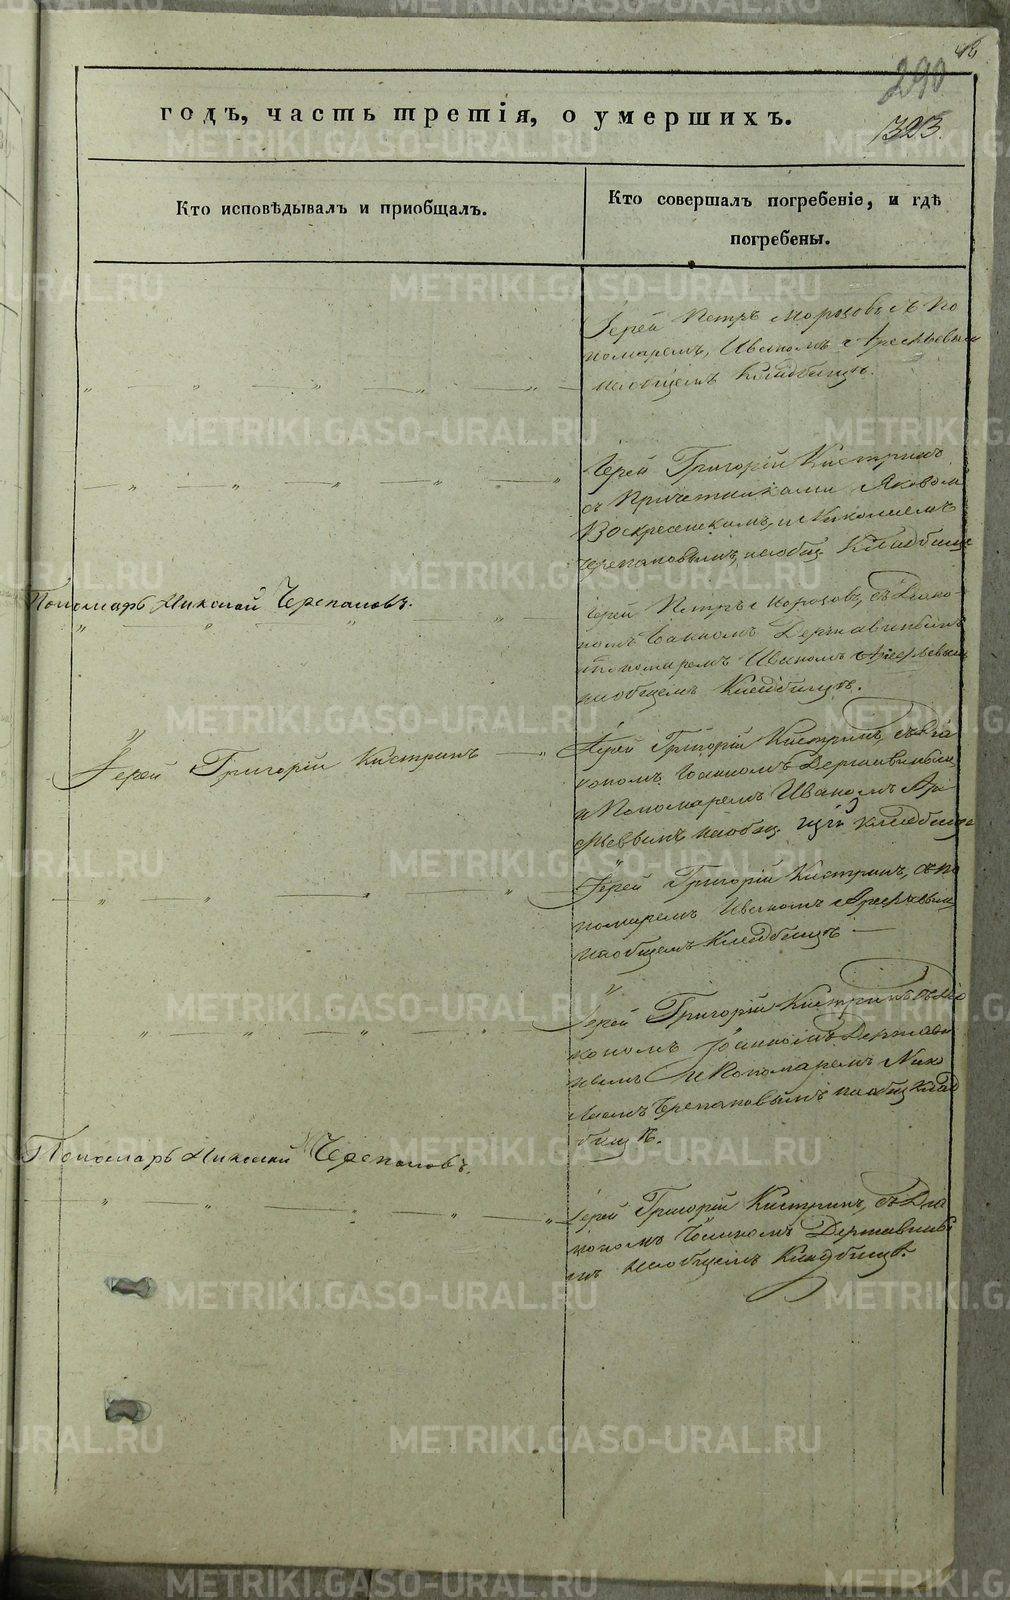 290
323.
годъ, часть третія, о умершихъ.
Кто исповѣдывалъ и приобщалъ.
Кто совершалъ погребеніе, и гдѣ
погребены.
Іерей Петръ Морозовъ съ По
номаремъ, Иваномъ Арефьевымъ
на общемъ Кладбищѣ.
Іерей Григорій Кистринъ
съ Причетниками Яковом
Воскресенскимъ, и Николаемъ
Черепановымъ, на общ. Кладбище
Пономарь Николай Черепановъ.
Іерей Петръ Морозовъ, съ Діако-
номъ Іоанномъ Державинымъ
и Пономаремъ Иваномъ Арефьевым
на общемъ Кладбищѣ.
Іерей Григорій Кистринъ
Іерей Григорій Кистринъ, съ Діа
кономъ Іоанномъ Державинымъ
и Пономаремъ Иваномъ Аре
фьевымъ на общ. кладбище
Іерей Григорій Кистринъ, съ По
номаремъ Иваномъ Арефьевым
на общемъ Кладбищѣ
Іерей Григорій Кистринъ съ Діа
кономъ Іоанномъ Держави
нымъ и Пономаремъ Нико
лаемъ Черепановымъ на общ. Клад
бищѣ.
Пономарь Николай Черепановъ.
Іерей Григорій Кистринъ, съ Діа
кономъ Іоанномъ Державины
мъ на общемъ Кладбищѣ.
METRIKI.GASO-URAL.RU